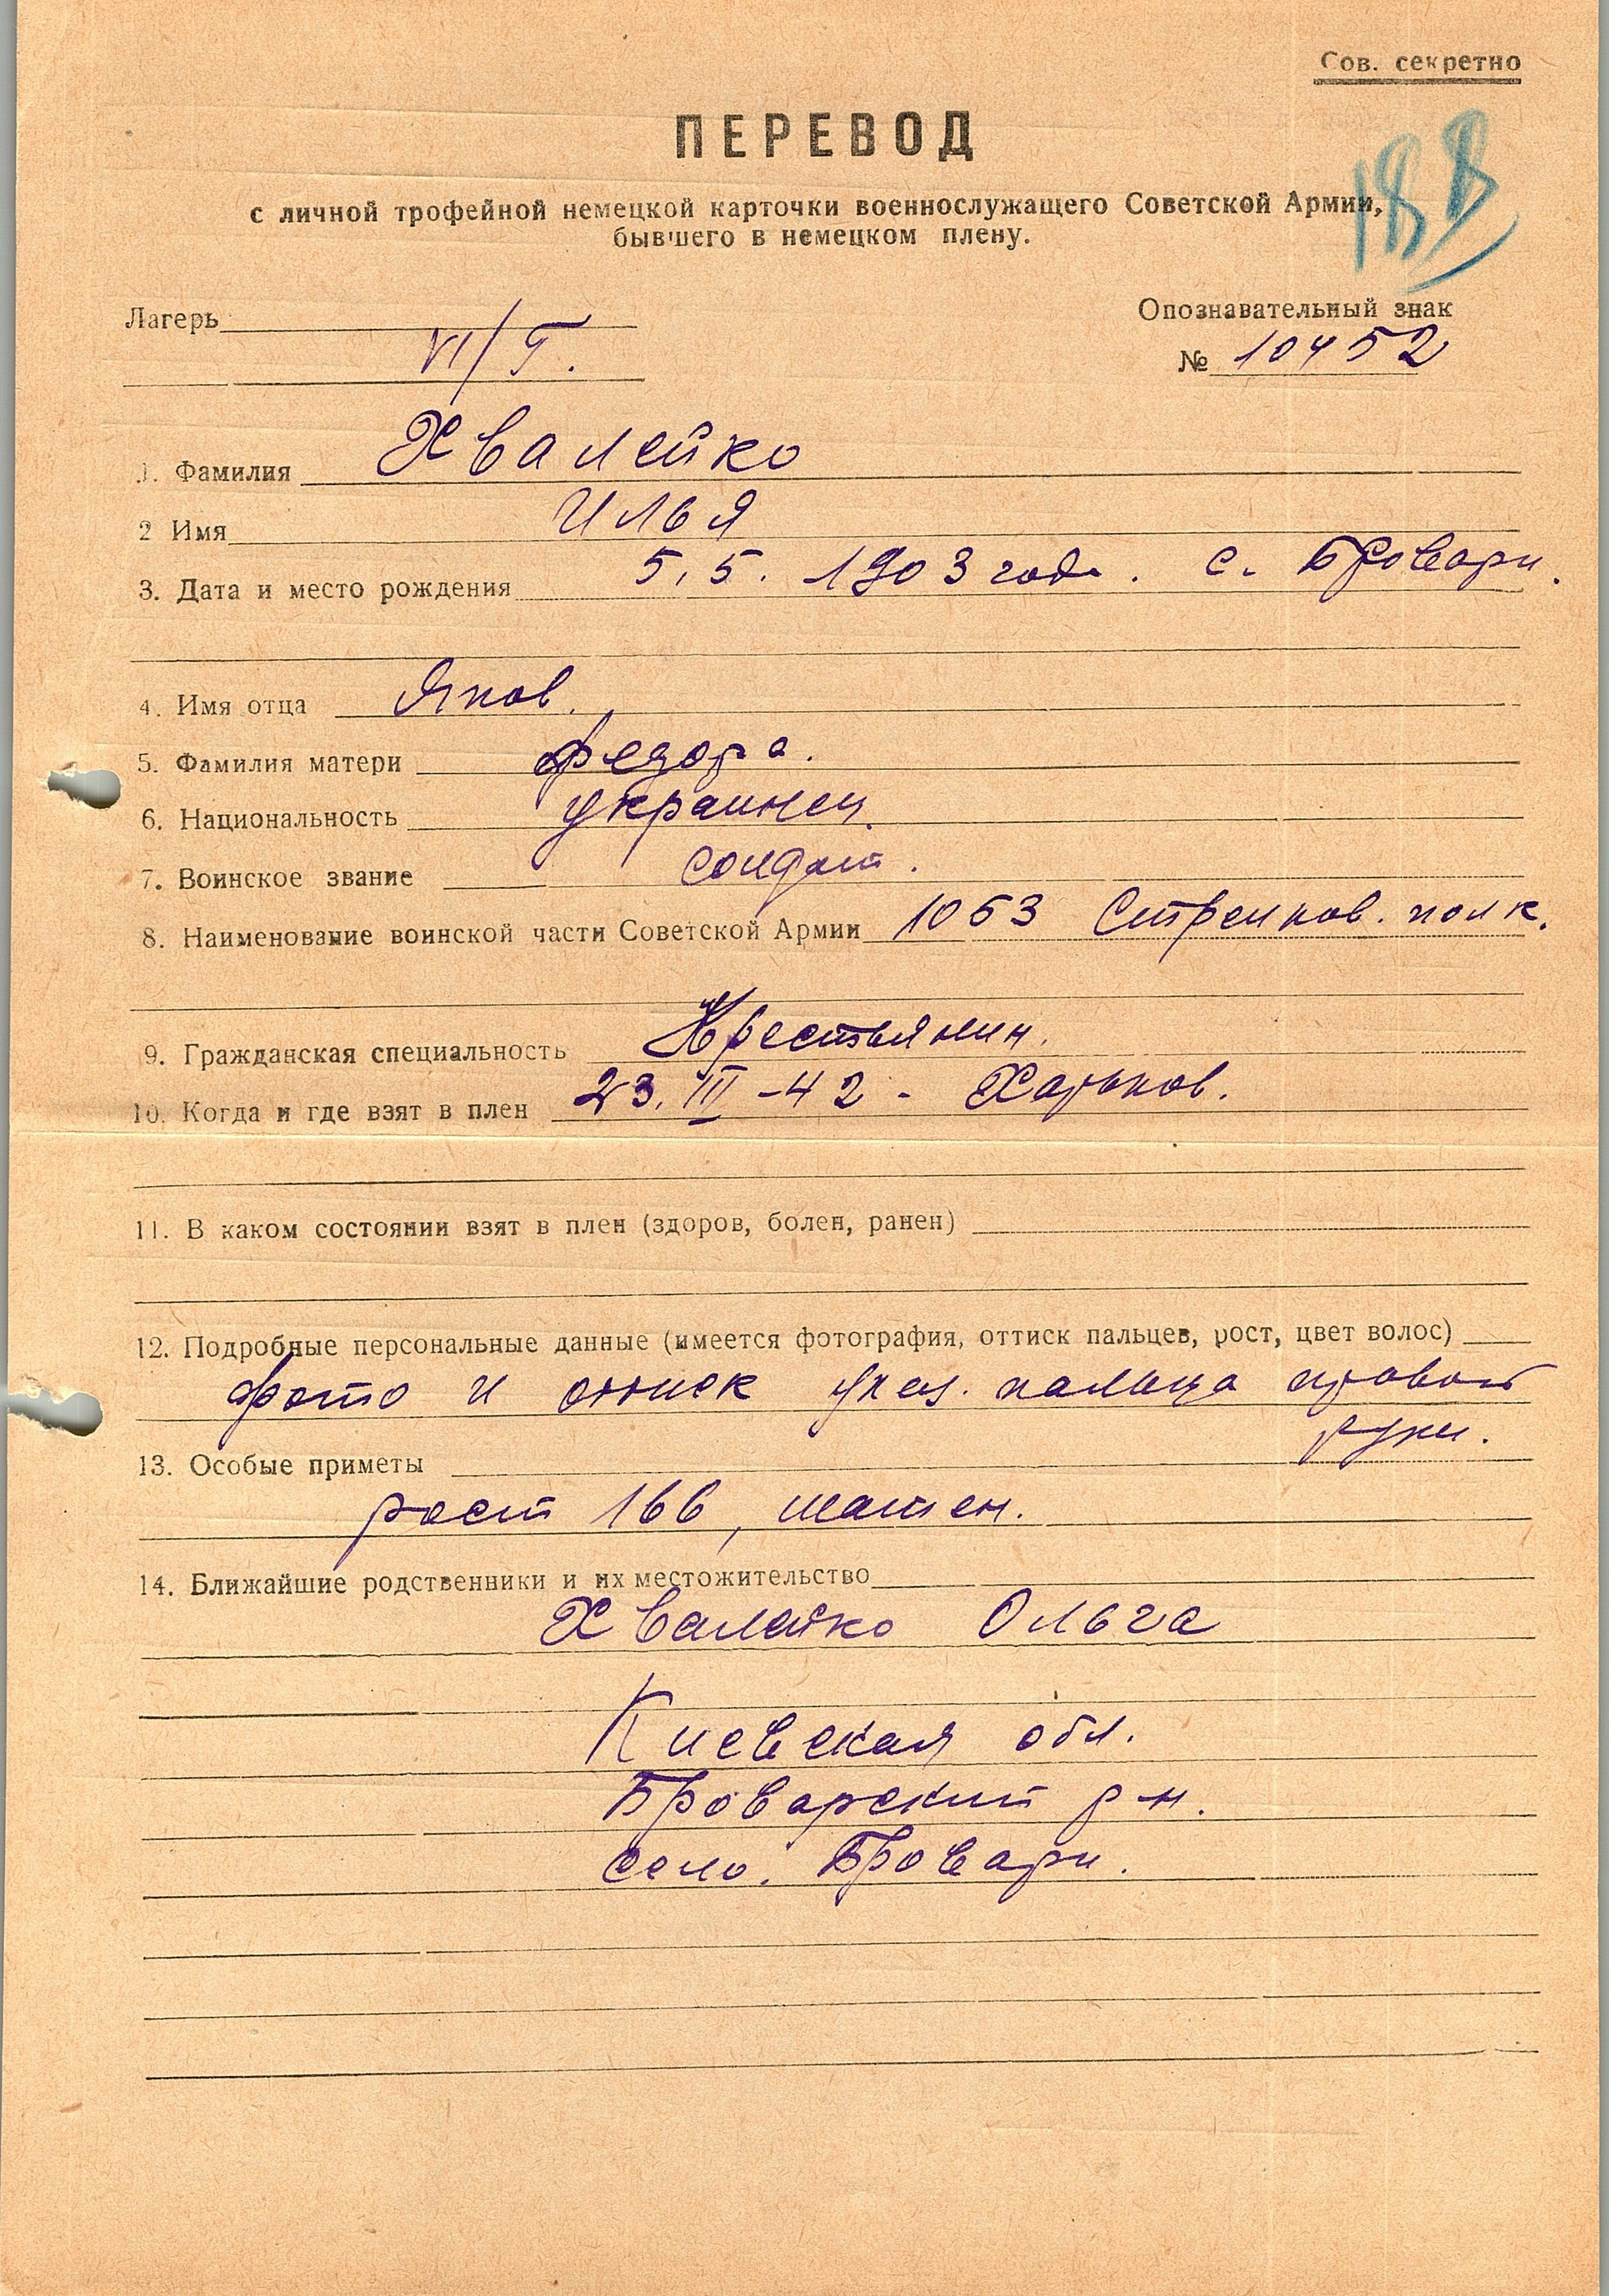 Сов. секретно
ПЕРЕВОД
с личной трофейной немецкой карточки военнослужащего Советской Армии,
бывшего в немецком плену.
Лагерь
VI/Г.
Опознавательный знак
№ 10452
1. Фамилия Хвалейко
2 Имя Илья
3. Дата и место рождения 5.5. 1903 года. с. Бровари.
4. Имя отца Яков.
5. Фамилия матери Федора.
6. Национальность украинец.
7. Воинское звание солдат.
8. Наименование воинской части Советской Армии 1053 Стрелков. полк.
9. Гражданская специальность Крестьянин.
10. Когда и где взят в плен 23. III-42 - Харьков.
11. В каком состоянии взят в плен (здоров, болен, ранен)
12. Подробные персональные данные (имеется фотография, оттиск пальцев, рост, цвет волос)
фото и оттиск указ. пальца правой
руки.
13. Особые приметы
рост 166, шатен.
14. Ближайшие родственники и их местожительство
Хвалейко Ольга
Киевская обл.
Броварский р-н.
село. Бровари.